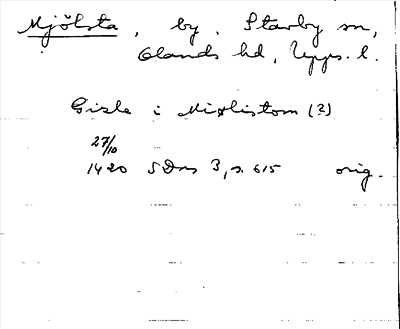 Mjölsta, by, Stavby sn,
Olands hd, Upps. l.
Gisle i Miølistom (?)
27/10
1420 SDns 3, s. 615 orig.